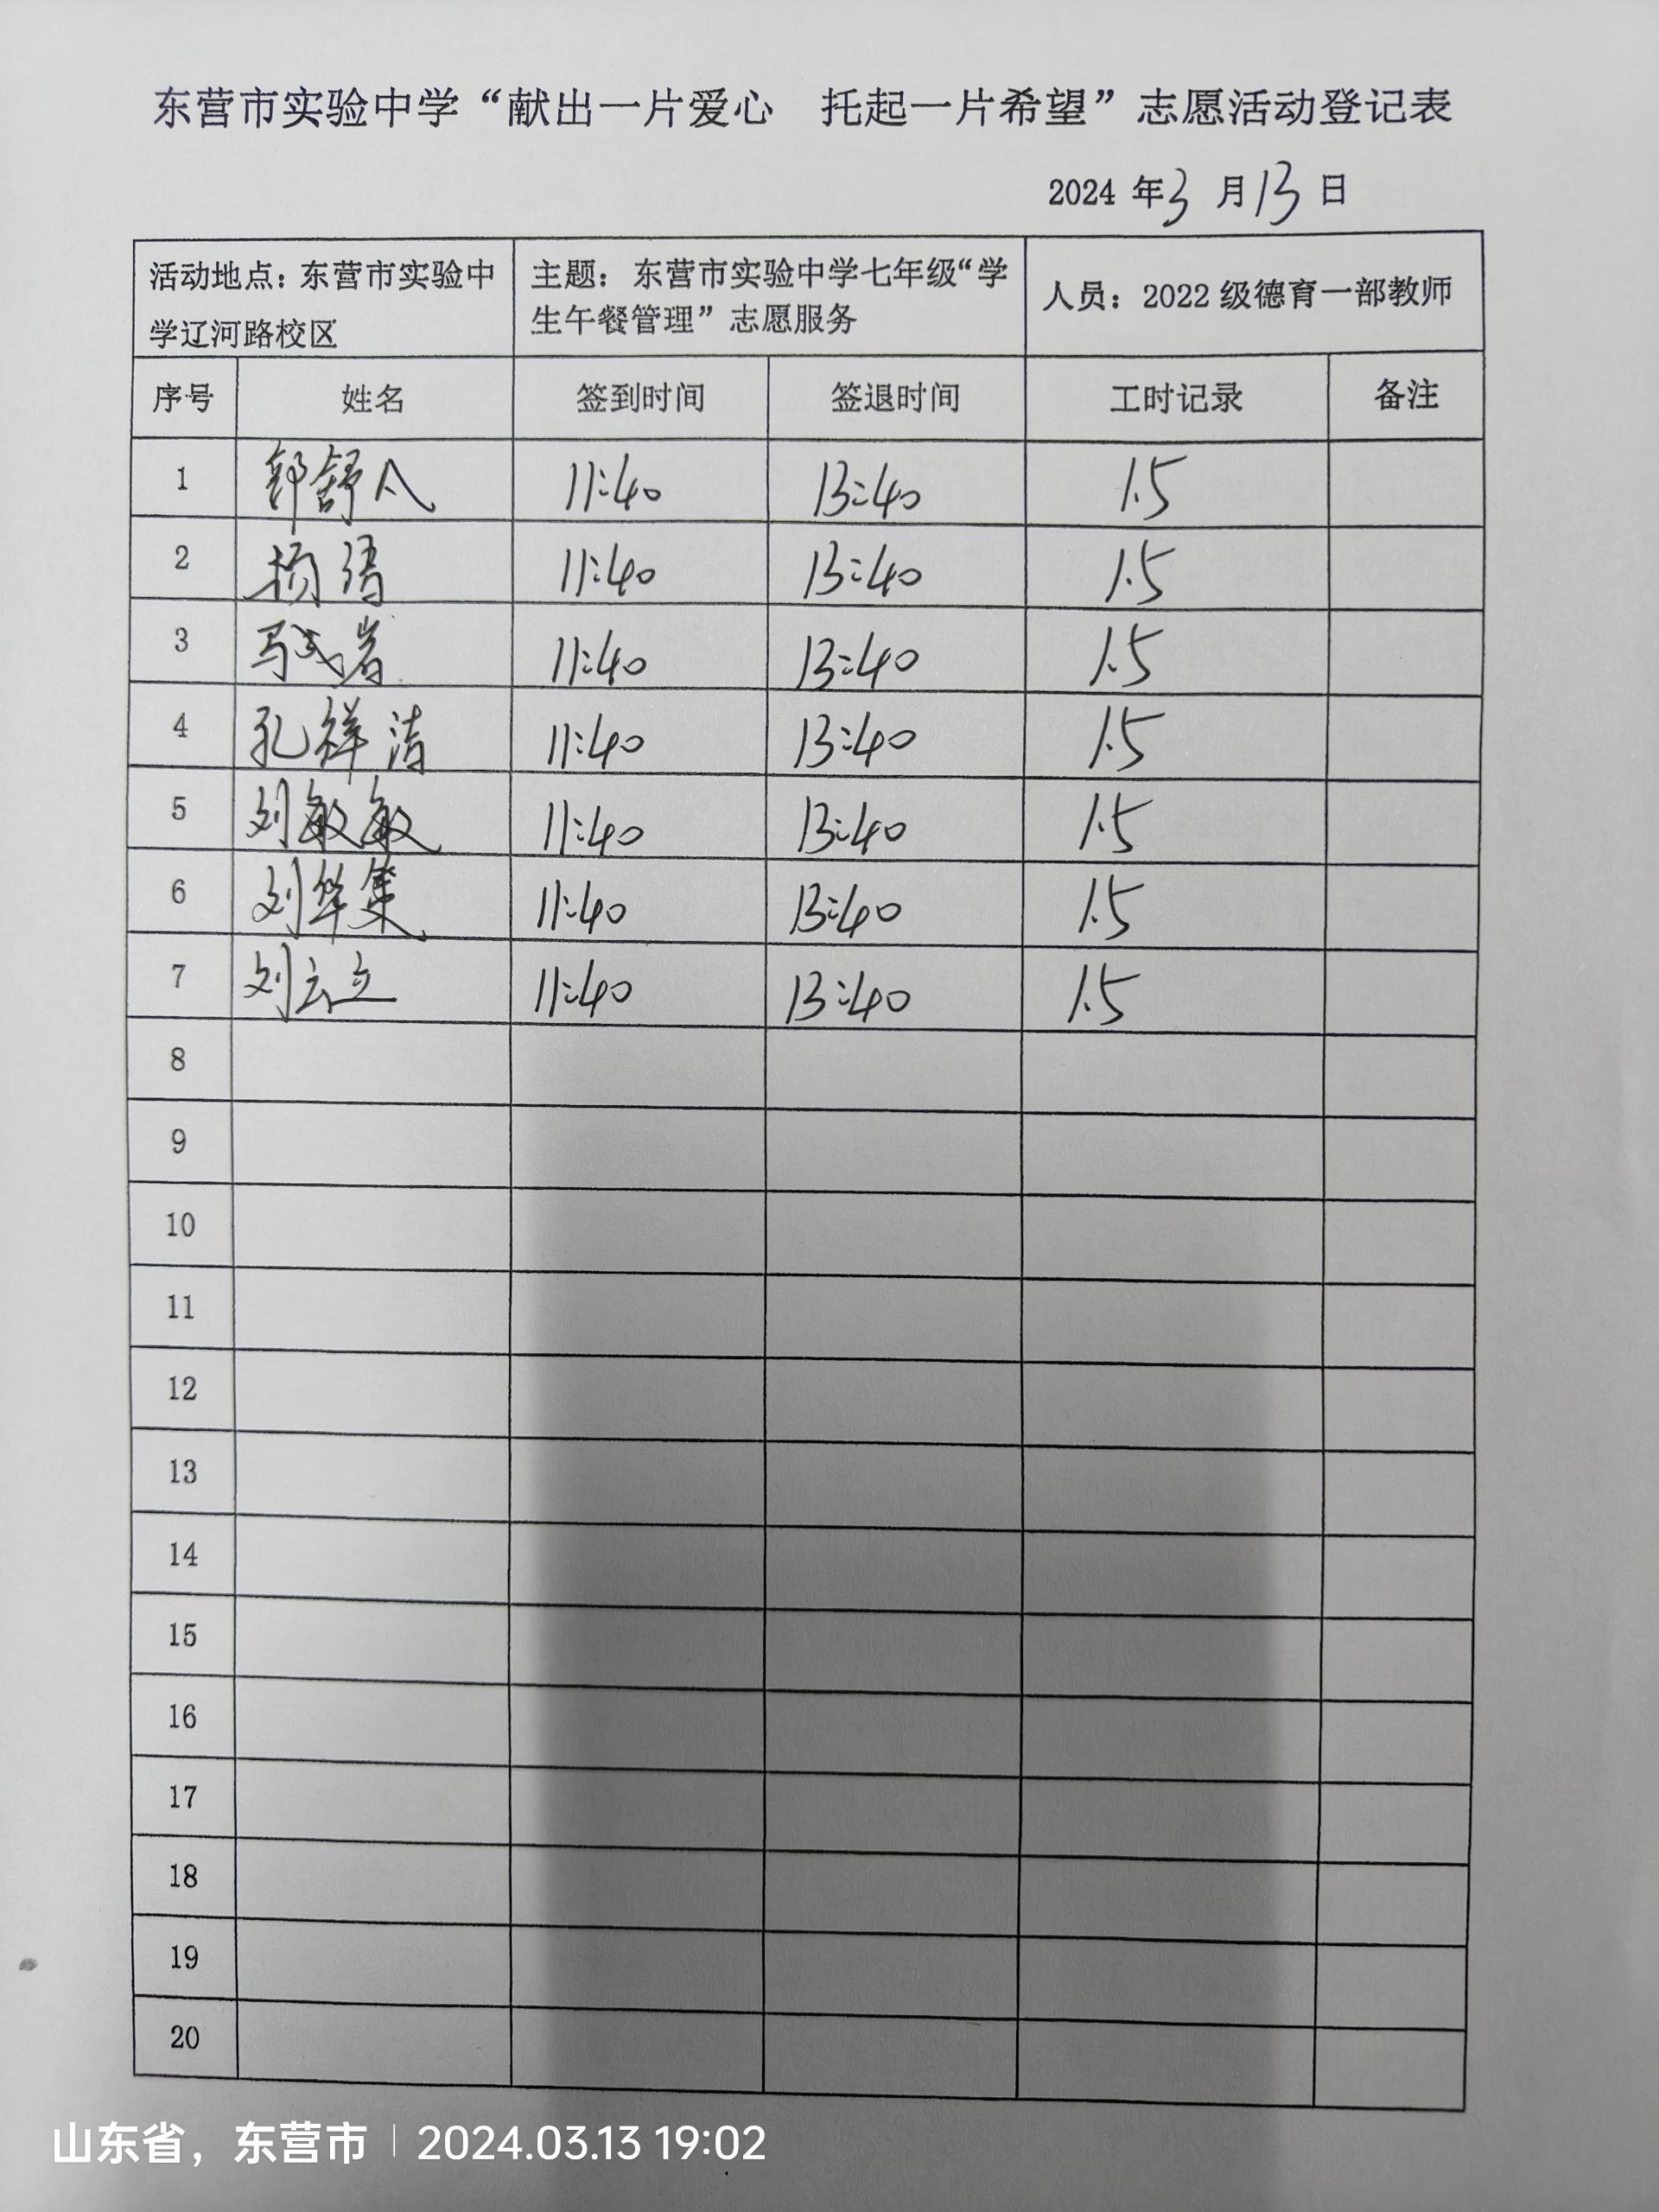 东营市实验中学“献出一片爱心 托起一片希望”志愿活动登记表
2024 年 3 月 13 日
活动地点：东营市实验中
学辽河路校区
主题：东营市实验中学七年级“学
生午餐管理”志愿服务
人员：2022 级德育一部教师
序号 姓名 签到时间 签退时间 工时记录 备注
1 舒人 11:40 13:40 1.5
2 杨 11:40 13:40 1.5
3 马 11:40 13:40 1.5
4 孔祥洁 11:40 13:40 1.5
5 刘敏敏 11:40 13:40 1.5
6 刘华集 11:40 13:40 1.5
7 刘云立 11:40 13:40 1.5
8
9
10
11
12
13
14
15
16
17
18
19
20
山东省，东营市 | 2024.03.13 19:02